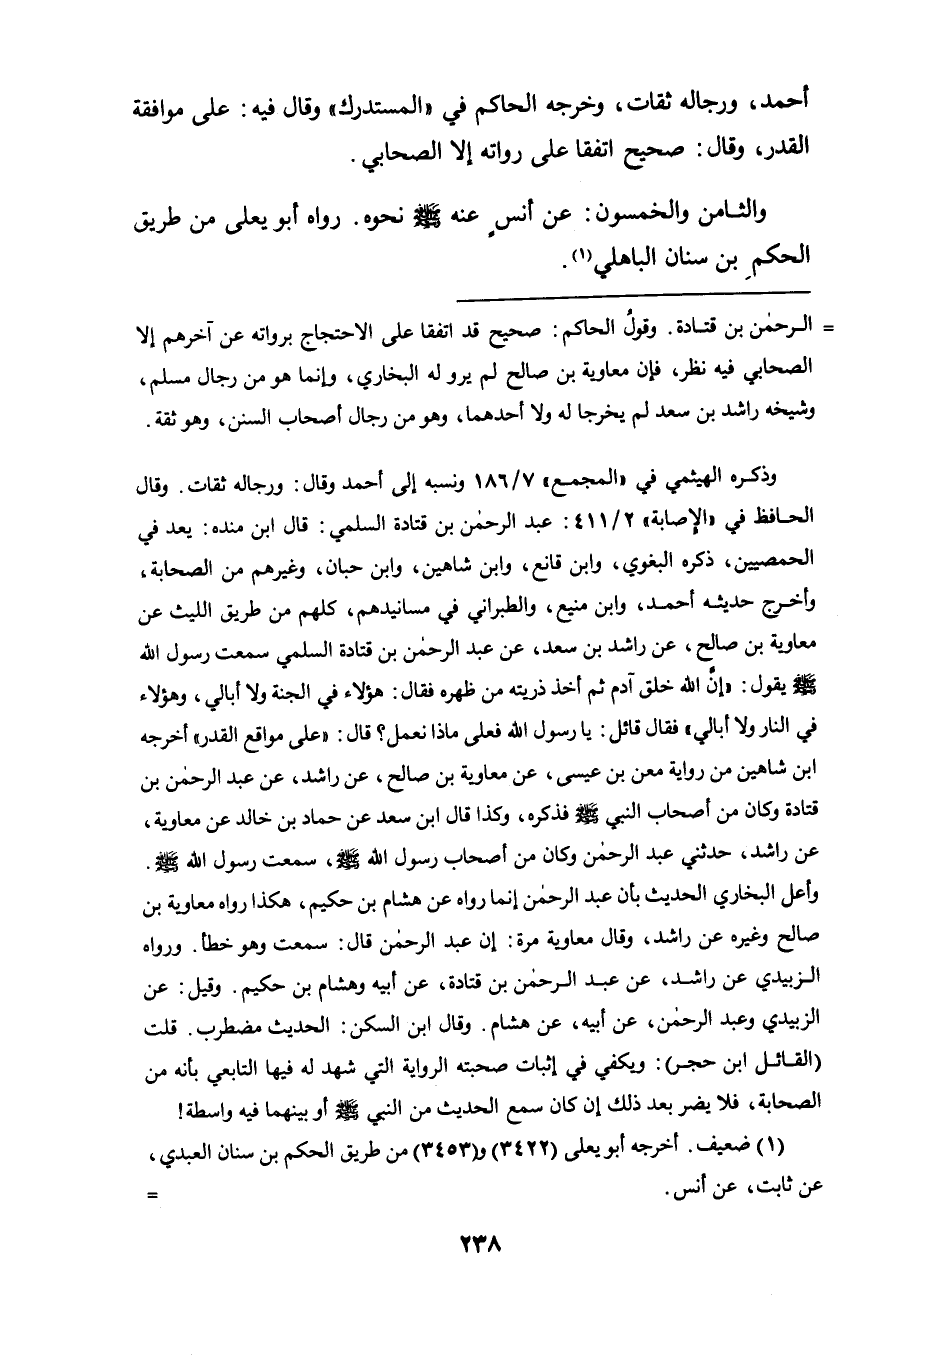 أحمد، ورجاله ثقات، وخرجه الحاكم في «المستدرك» وقال فيه: على موافقة
القدر، وقال: صحيح اتفقا على رواته إلا الصحابي.
والثامن والخمسون: عن أنسٍ عنه ﷺ نحوه. رواه أبو يعلى من طريق
الحكمِ بن سنان الباهلي(١).
= الرحمٰن بن قتادة. وقولُ الحاكم: صحيح قد اتفقا على الاحتجاج برواته عن آخرهم إلا
الصحابي فيه نظر، فإن معاوية بن صالح لم يرو له البخاري، وإنما هو من رجال مسلم،
وشيخه راشد بن سعد لم يخرجا له ولا أحدهما، وهو من رجال أصحاب السنن، وهو ثقة.
وذكره الهيثمي في «المجمع» ١٨٦/٧ ونسبه إلى أحمد وقال: ورجاله ثقات. وقال
الحافظ في «الإصابة» ٤١١/٢: عبد الرحمٰن بن قتادة السلمي: قال ابن منده: يعد في
الحمصيين، ذكره البغوي، وابن قانع، وابن شاهين، وابن حبان، وغيرهم من الصحابة،
وأخرج حديثه أحمد، وابن منيع، والطبراني في مسانيدهم، كلهم من طريق الليث عن
معاوية بن صالح، عن راشد بن سعد، عن عبد الرحمٰن بن قتادة السلمي سمعت رسول الله
ﷺ يقول: «إنَّ الله خلق آدم ثم أخذ ذريته من ظهره فقال: هؤلاء في الجنة ولا أبالي، وهؤلاء
في النار ولا أبالي» فقال قائل: يا رسول الله فعلى ماذا نعمل؟ قال: «على مواقع القدر» أخرجه
ابن شاهين من رواية معن بن عيسى، عن معاوية بن صالح، عن راشد، عن عبد الرحمٰن بن
قتادة وكان من أصحاب النبي ﷺ فذكره، وكذا قال ابن سعد عن حماد بن خالد عن معاوية،
عن راشد، حدثني عبد الرحمٰن وكان من أصحاب رسول الله ﷺ، سمعت رسول الله ﷺ.
وأعل البخاري الحديث بأن عبد الرحمٰن إنما رواه عن هشام بن حكيم، هكذا رواه معاوية بن
صالح وغيره عن راشد، وقال معاوية مرة: إن عبد الرحمٰن قال: سمعت وهو خطأ. ورواه
الزبيدي عن راشد، عن عبد الرحمٰن بن قتادة، عن أبيه وهشام بن حكيم. وقيل: عن
الزبيدي وعبد الرحمٰن، عن أبيه، عن هشام. وقال ابن السكن: الحديث مضطرب. قلت
(القائل ابن حجر): ويكفي في إثبات صحبته الرواية التي شهد له فيها التابعي بأنه من
الصحابة، فلا يضر بعد ذلك إن كان سمع الحديث من النبي ﷺ أو بينهما فيه واسطة!
(١) ضعيف. أخرجه أبو يعلى (٣٤٢٢) و(٣٤٥٣) من طريق الحكم بن سنان العبدي،
عن ثابت، عن أنس. =
٢٣٨